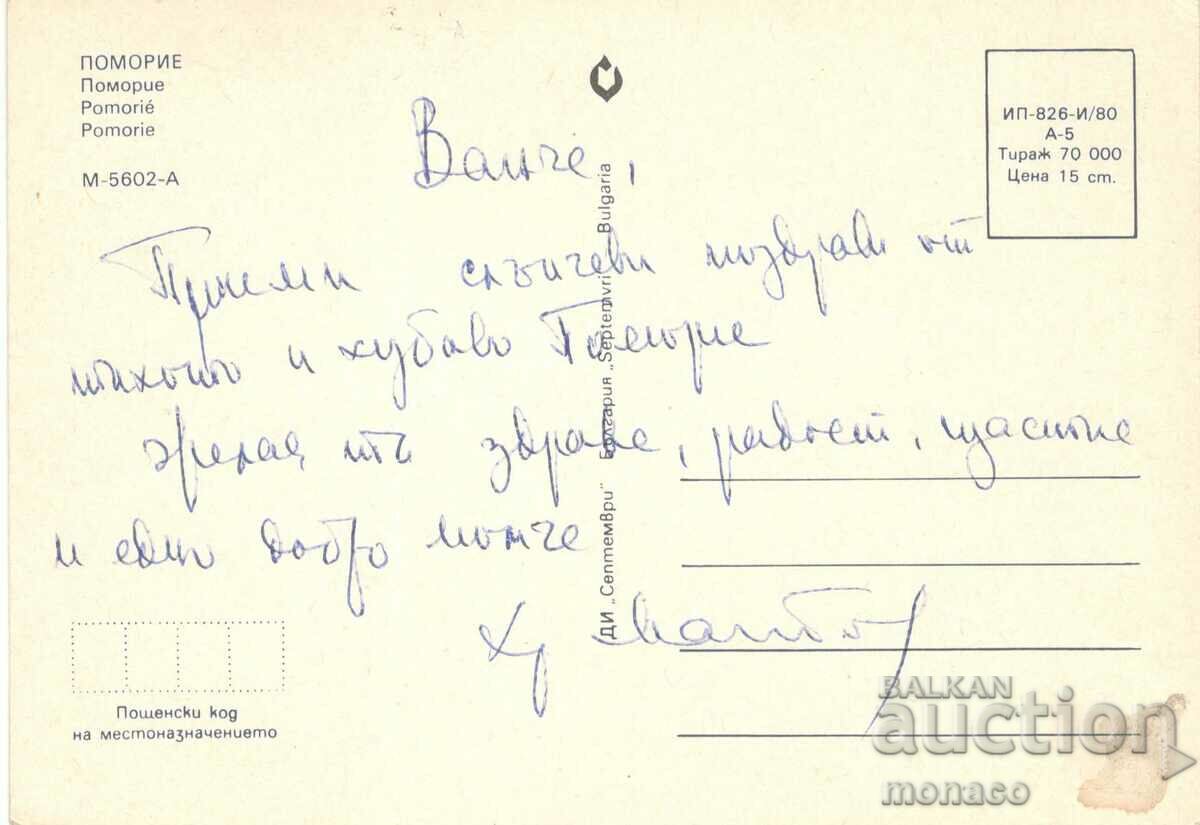 ПОМОРИЕ
Поморие
Pomorié
Pomorie
М-5602-А
ИП-826-И/80
А-5
Тираж 70 000
Цена 15 ст.
Ванче,
Приеми слънчеви поздрави от
тихото и хубаво Поморие
желая ти здраве, радост, щастие
и едно добро момче
Хр
ДИ „Септември" България „Septemvri" Bulgaria
Пощенски код
на местоназначението
BALKAN
auction
monaco